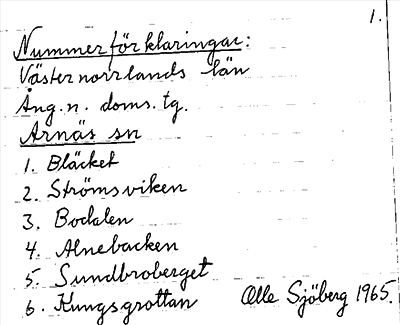 1.
Nummerförklaringar:
Västernorrlands län
Ång. n. doms. tg.
Arnäs sn
1. Bläcket
2. Strömsviken
3. Bodalen
4. Alnebacken
5. Sundbroberget
6. Kungsgrottan Olle Sjöberg 1965.